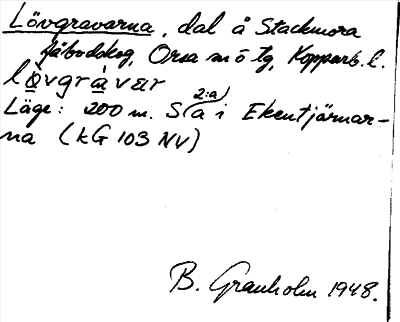 Lövgravarna, dal å Stackmora
fäbodskog, Orsa sn ö tg, Kopparb. l.
lövgràvær
Läge: 200 m. S a i Ekentjärnar-
2:a
na (kG 103 NV)
B. Granholm 1948.